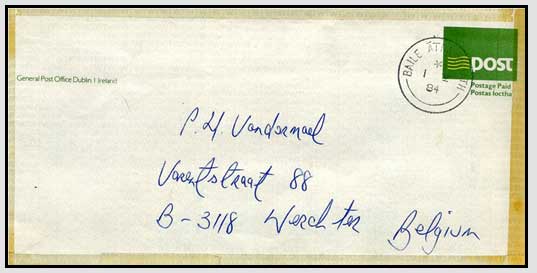 post
BAILE ÁTH
1
84
Postage Paid
Postas Íoctha
General Post Office Dublin 1 Ireland
P. H. Vandermael
Varentstraat 88
B - 3118 Werchter
Belgium